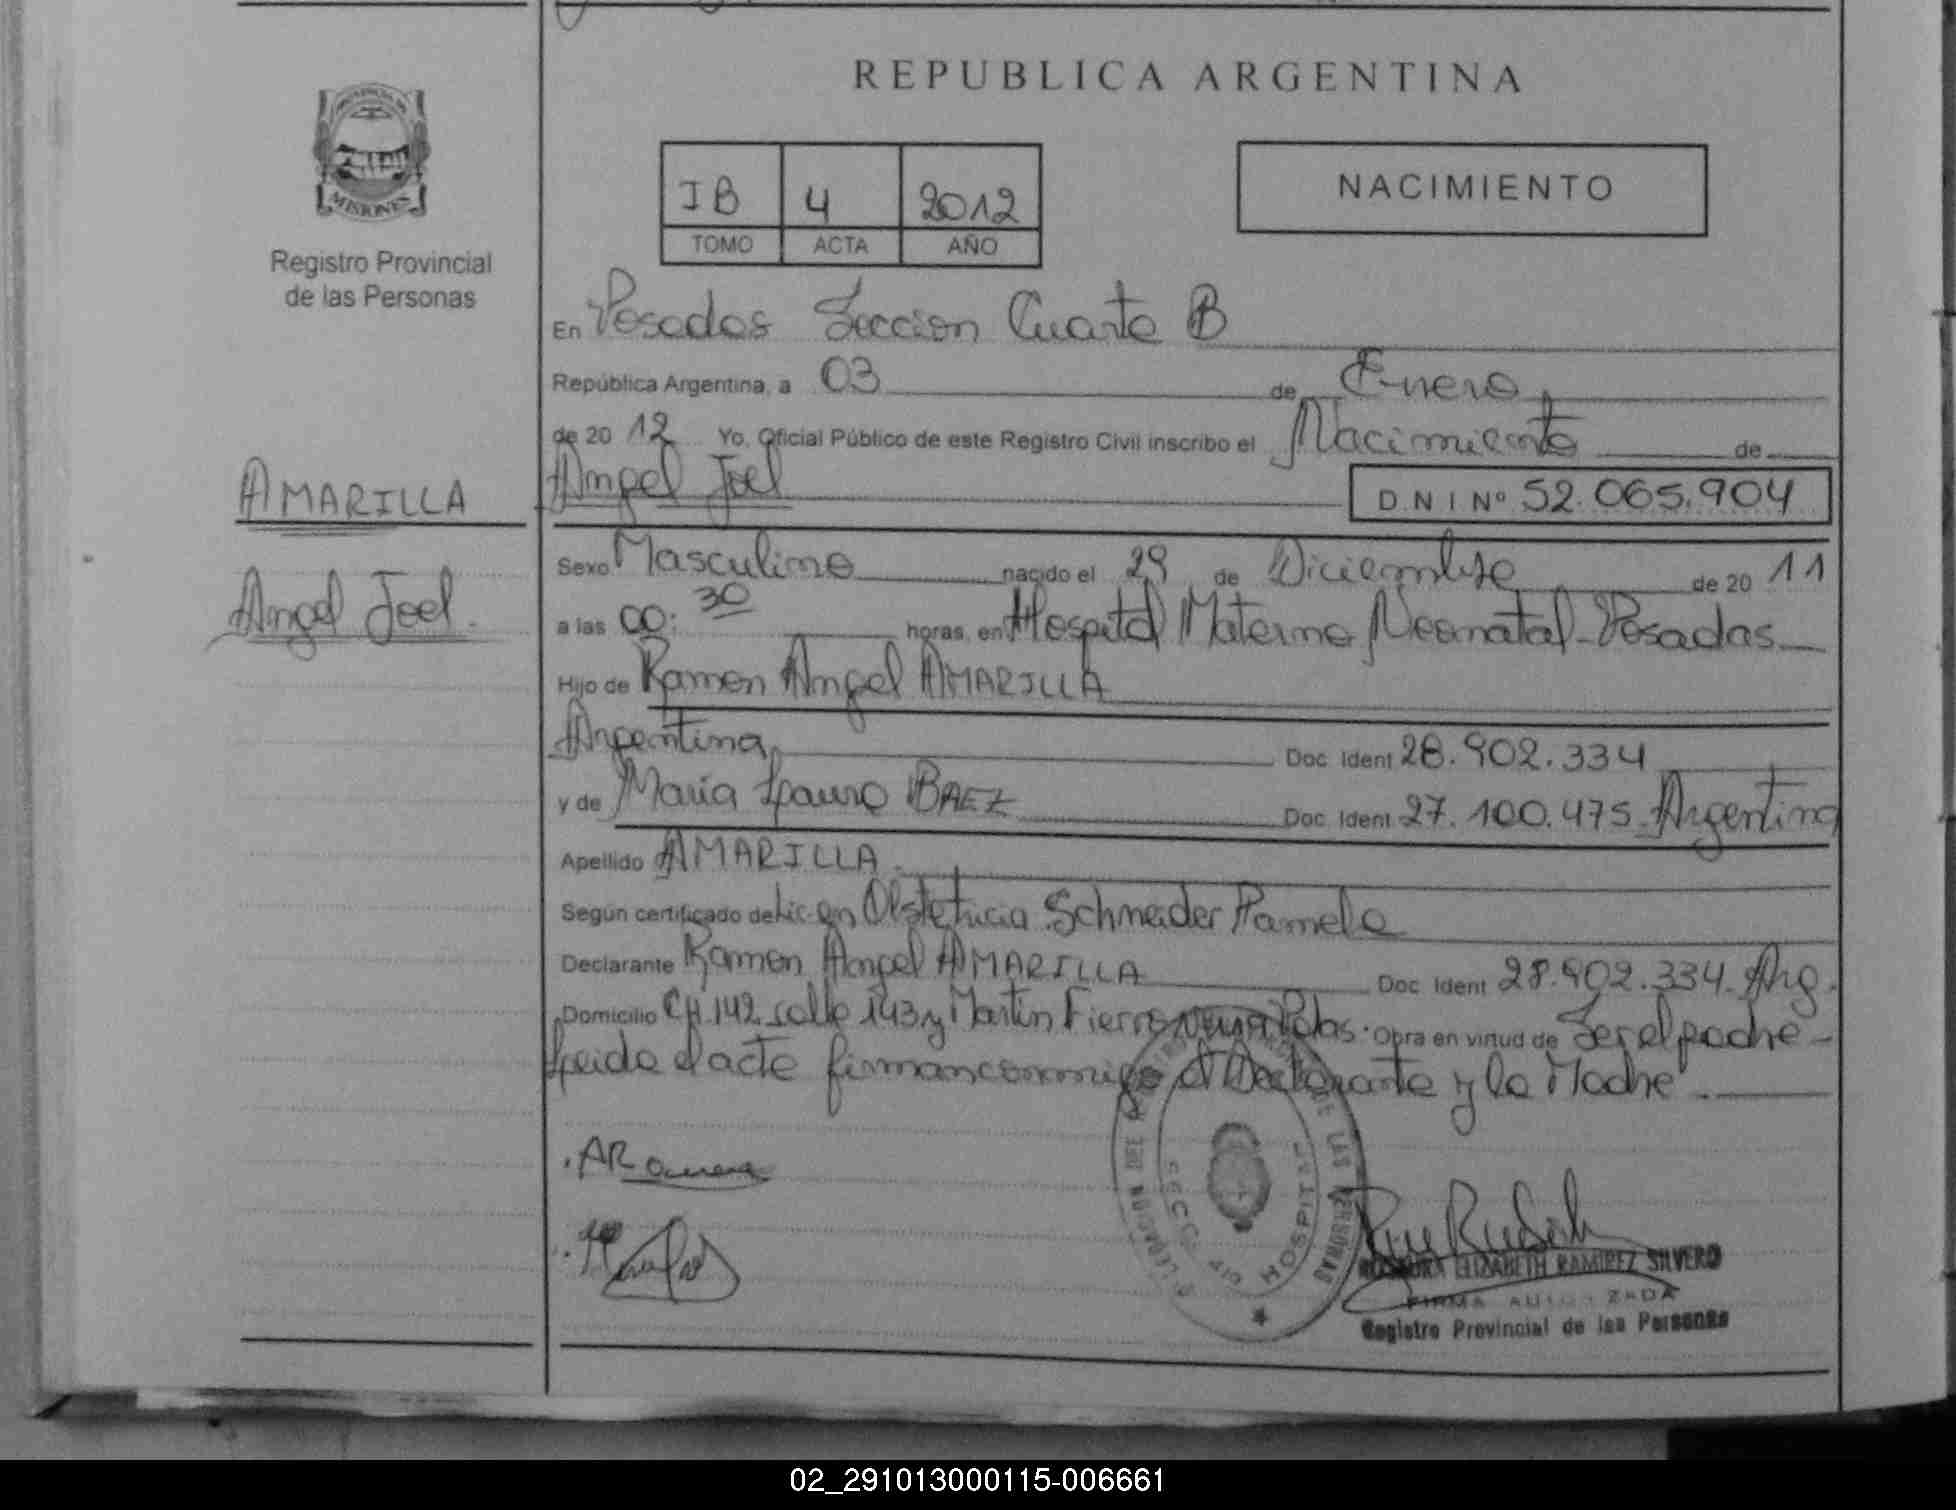 REPUBLICA ARGENTINA
PROVINCIA DE
MISIONES
Registro Provincial
de las Personas
IB 4 2012
TOMO ACTA AÑO
NACIMIENTO
En Posadas Seccion Cuarta B
República Argentina, a 03 de Enero
de 2012 Yo, Oficial Público de este Registro Civil inscribo el Nacimiento de
AMARILLA
Angel Joel
D N I Nº 52.065.904
Angel Joel.
Sexo Masculino nacido el 29 de Diciembre de 2011
a las 00:30 horas, en Hospital Materno Neonatal - Posadas
Hijo de Ramon Angel AMARILLA
Argentina Doc Ident 28.902.334
y de Maria Laura BAEZ Doc Ident 27.100.475 Argentina
Apellido AMARILLA
Según certificado de Lic. en Obstetricia Schneider Pamela
Declarante Ramon Angel AMARILLA Doc Ident 28.902.334 Arg.
Domicilio CH 142 calle 143 y Martin Fierro Pdas. Obra en virtud de Ser el padre
Leida el acta firman conmigo el Declarante y la Madre
HOSPITAL
ELIZABETH RAMIREZ SILVERO
FIRMA AUTORIZADA
Registro Provincial de las Personas
02_291013000115-006661